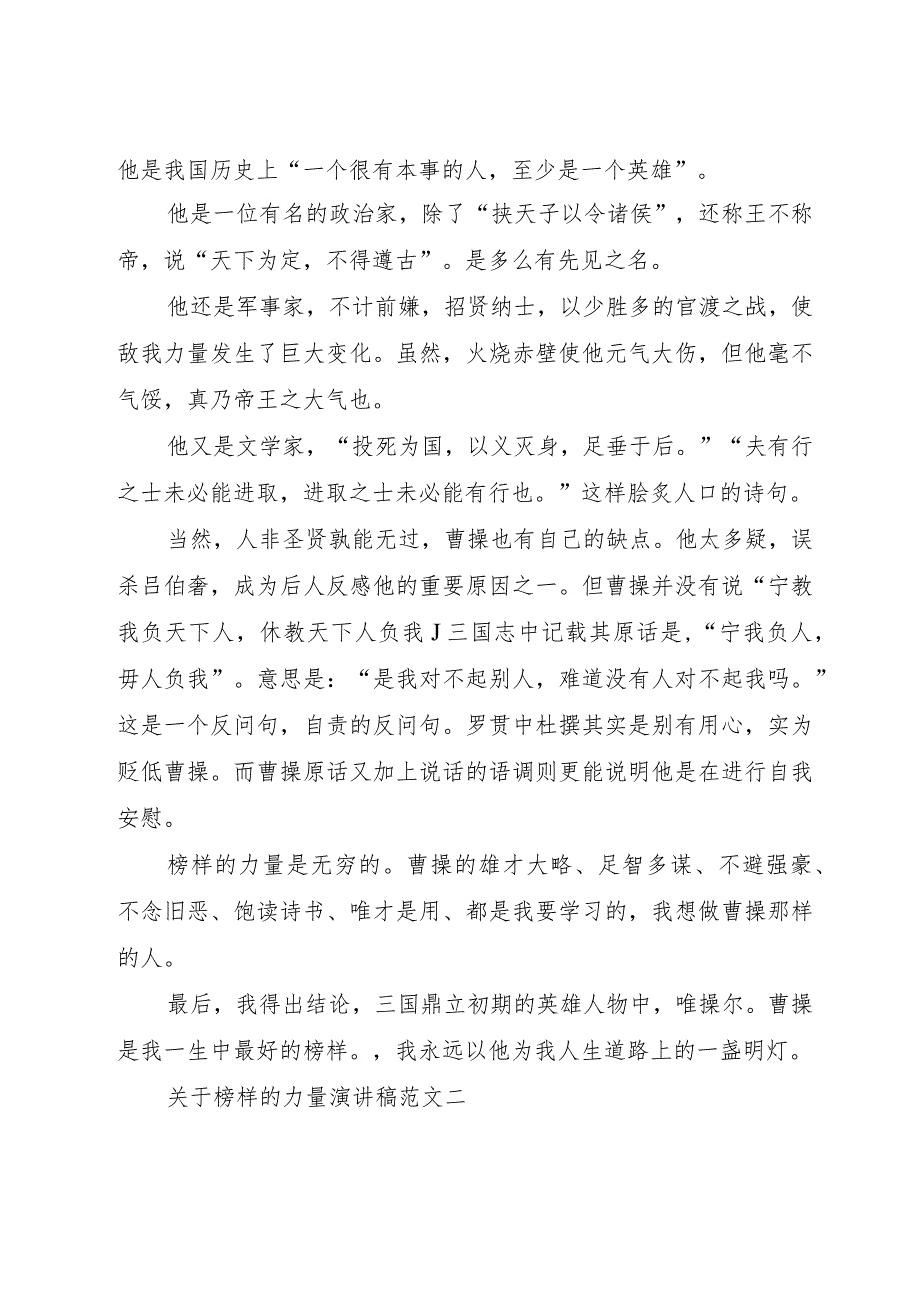 他是我国历史上“一个很有本事的人，至少是一个英雄”。
他是一位有名的政治家，除了“挟天子以令诸侯”，还称王不称
帝，说“天下为定，不得遵古”。是多么有先见之名。
他还是军事家，不计前嫌，招贤纳士，以少胜多的官渡之战，使
敌我力量发生了巨大变化。虽然，火烧赤壁使他元气大伤，但他毫不
气馁，真乃帝王之大气也。
他又是文学家，“投死为国，以义灭身，足垂于后。”“夫有行
之士未必能进取，进取之士未必能有行也。”这样脍炙人口的诗句。
当然，人非圣贤孰能无过，曹操也有自己的缺点。他太多疑，误
杀吕伯奢，成为后人反感他的重要原因之一。但曹操并没有说“宁教
我负天下人，休教天下人负我J三国志中记载其原话是，“宁我负人，
毋人负我”。意思是：“是我对不起别人，难道没有人对不起我吗。”
这是一个反问句，自责的反问句。罗贯中杜撰其实是别有用心，实为
贬低曹操。而曹操原话又加上说话的语调则更能说明他是在进行自我
安慰。
榜样的力量是无穷的。曹操的雄才大略、足智多谋、不避强豪、
不念旧恶、饱读诗书、唯才是用、都是我要学习的，我想做曹操那样
的人。
最后，我得出结论，三国鼎立初期的英雄人物中，唯操尔。曹操
是我一生中最好的榜样。，我永远以他为我人生道路上的一盏明灯。
关于榜样的力量演讲稿范文二